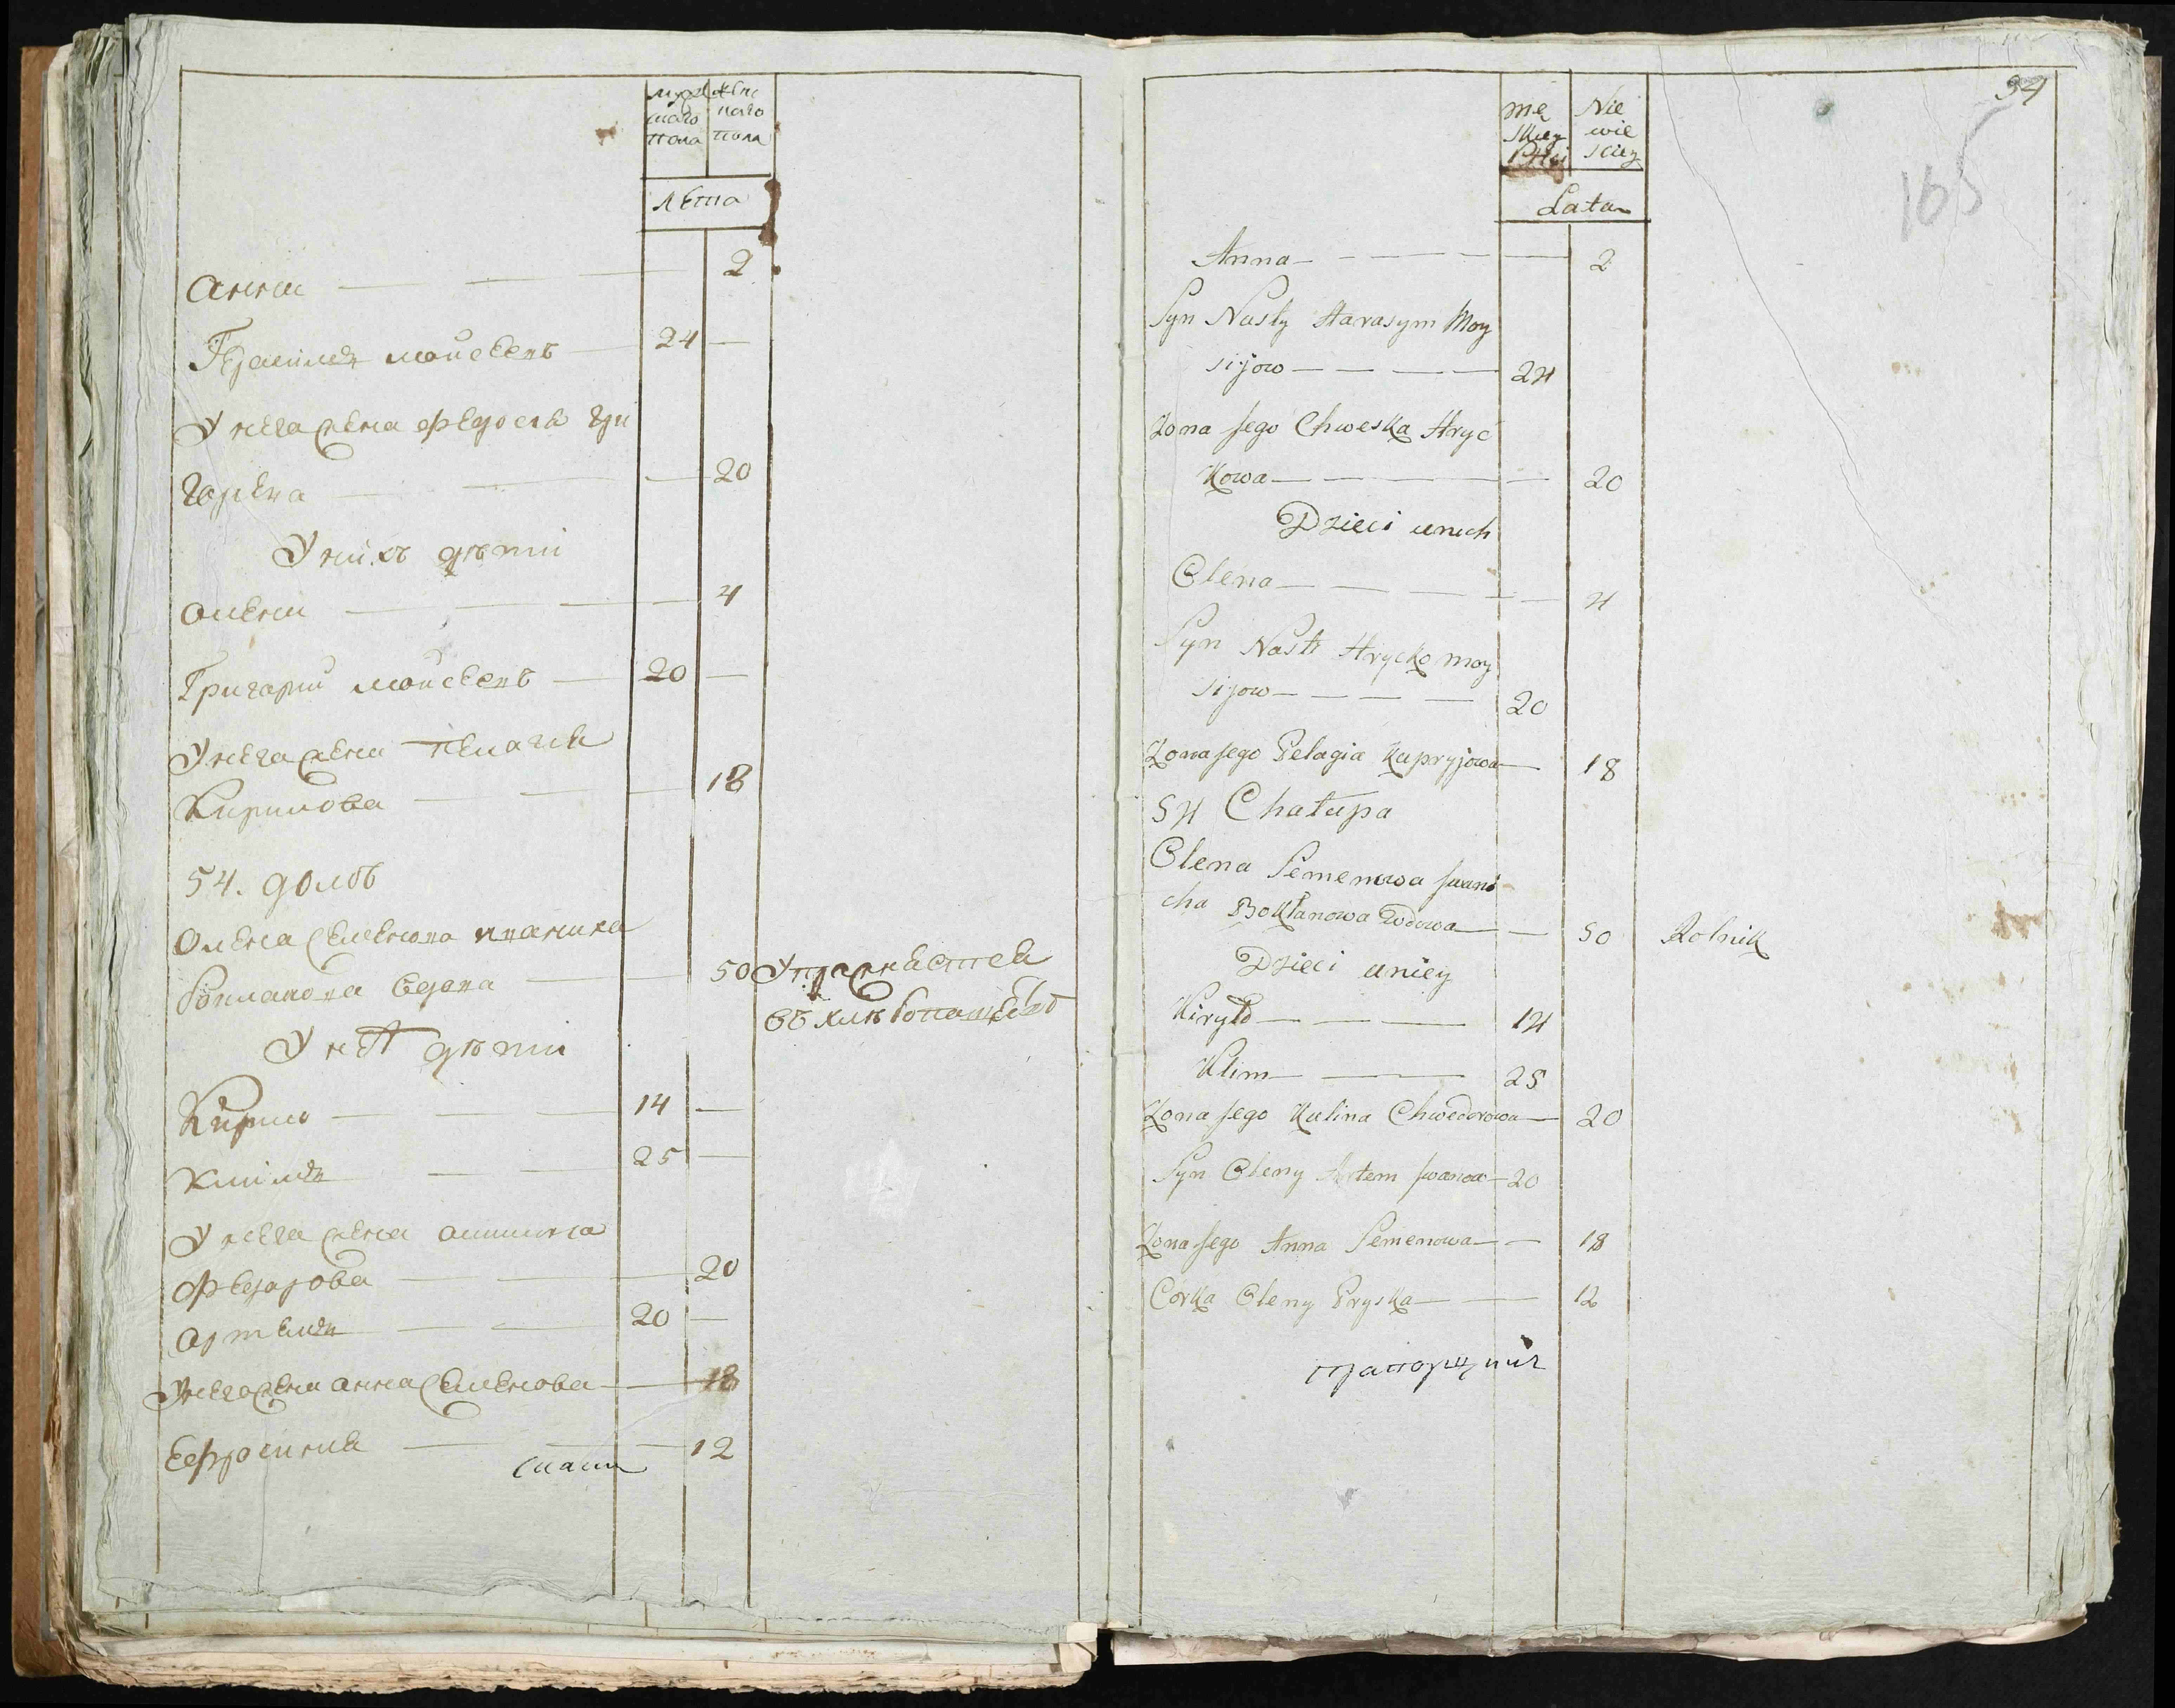 мужеска го пола
женс каго пола
лета
Анна — — 2
Герасимъ мойсеевъ — 24 —
У него жена Федосия Гри
горева — — 20
У нихъ дѣти
Олена — — 4
Григорий мойсеевъ — 20 —
У него жена Пелагия
Кирилова — — 18
54. домъ
Олена Семенова иваниха
Бокланова вдова — 50 Упражняется
въ хлѣбопашестве
У неѣ дѣти
Кирило — — 14 —
Климъ — — 25 —
У него жена Акилина
Федорова — — 20
Артемъ — — 20 —
У него жена Анна Семенова — 18
Ефросиния — — 12
54
165
mę skiey Płci
Nie wie sciey
Lata
Anna — — — 2
Syn Nasty Harasym Moy
sijow — — — 24
Zona jego Chweska Hryc
kowa — — — 20
Dzieci unich
Olena — — — 4
Syn Nasti Hrycko moy
sijow — — — 20
Zona jego Pelagia Kupryjowa — 18
54 Chałupa
Olena Semenowa Iwani
cha Bokłanowa Wdowa — — 50 Rolnik
Dzieci uniey
Kiryło — — — 14
Klim — — 25
Zona jego Kulina Chwedorowa — 20
Syn Oleny Artem Iwanow — 20
Zona jego Anna Semenowa — — 18
Corka Oleny Pryska — — 12
прапорщикъ